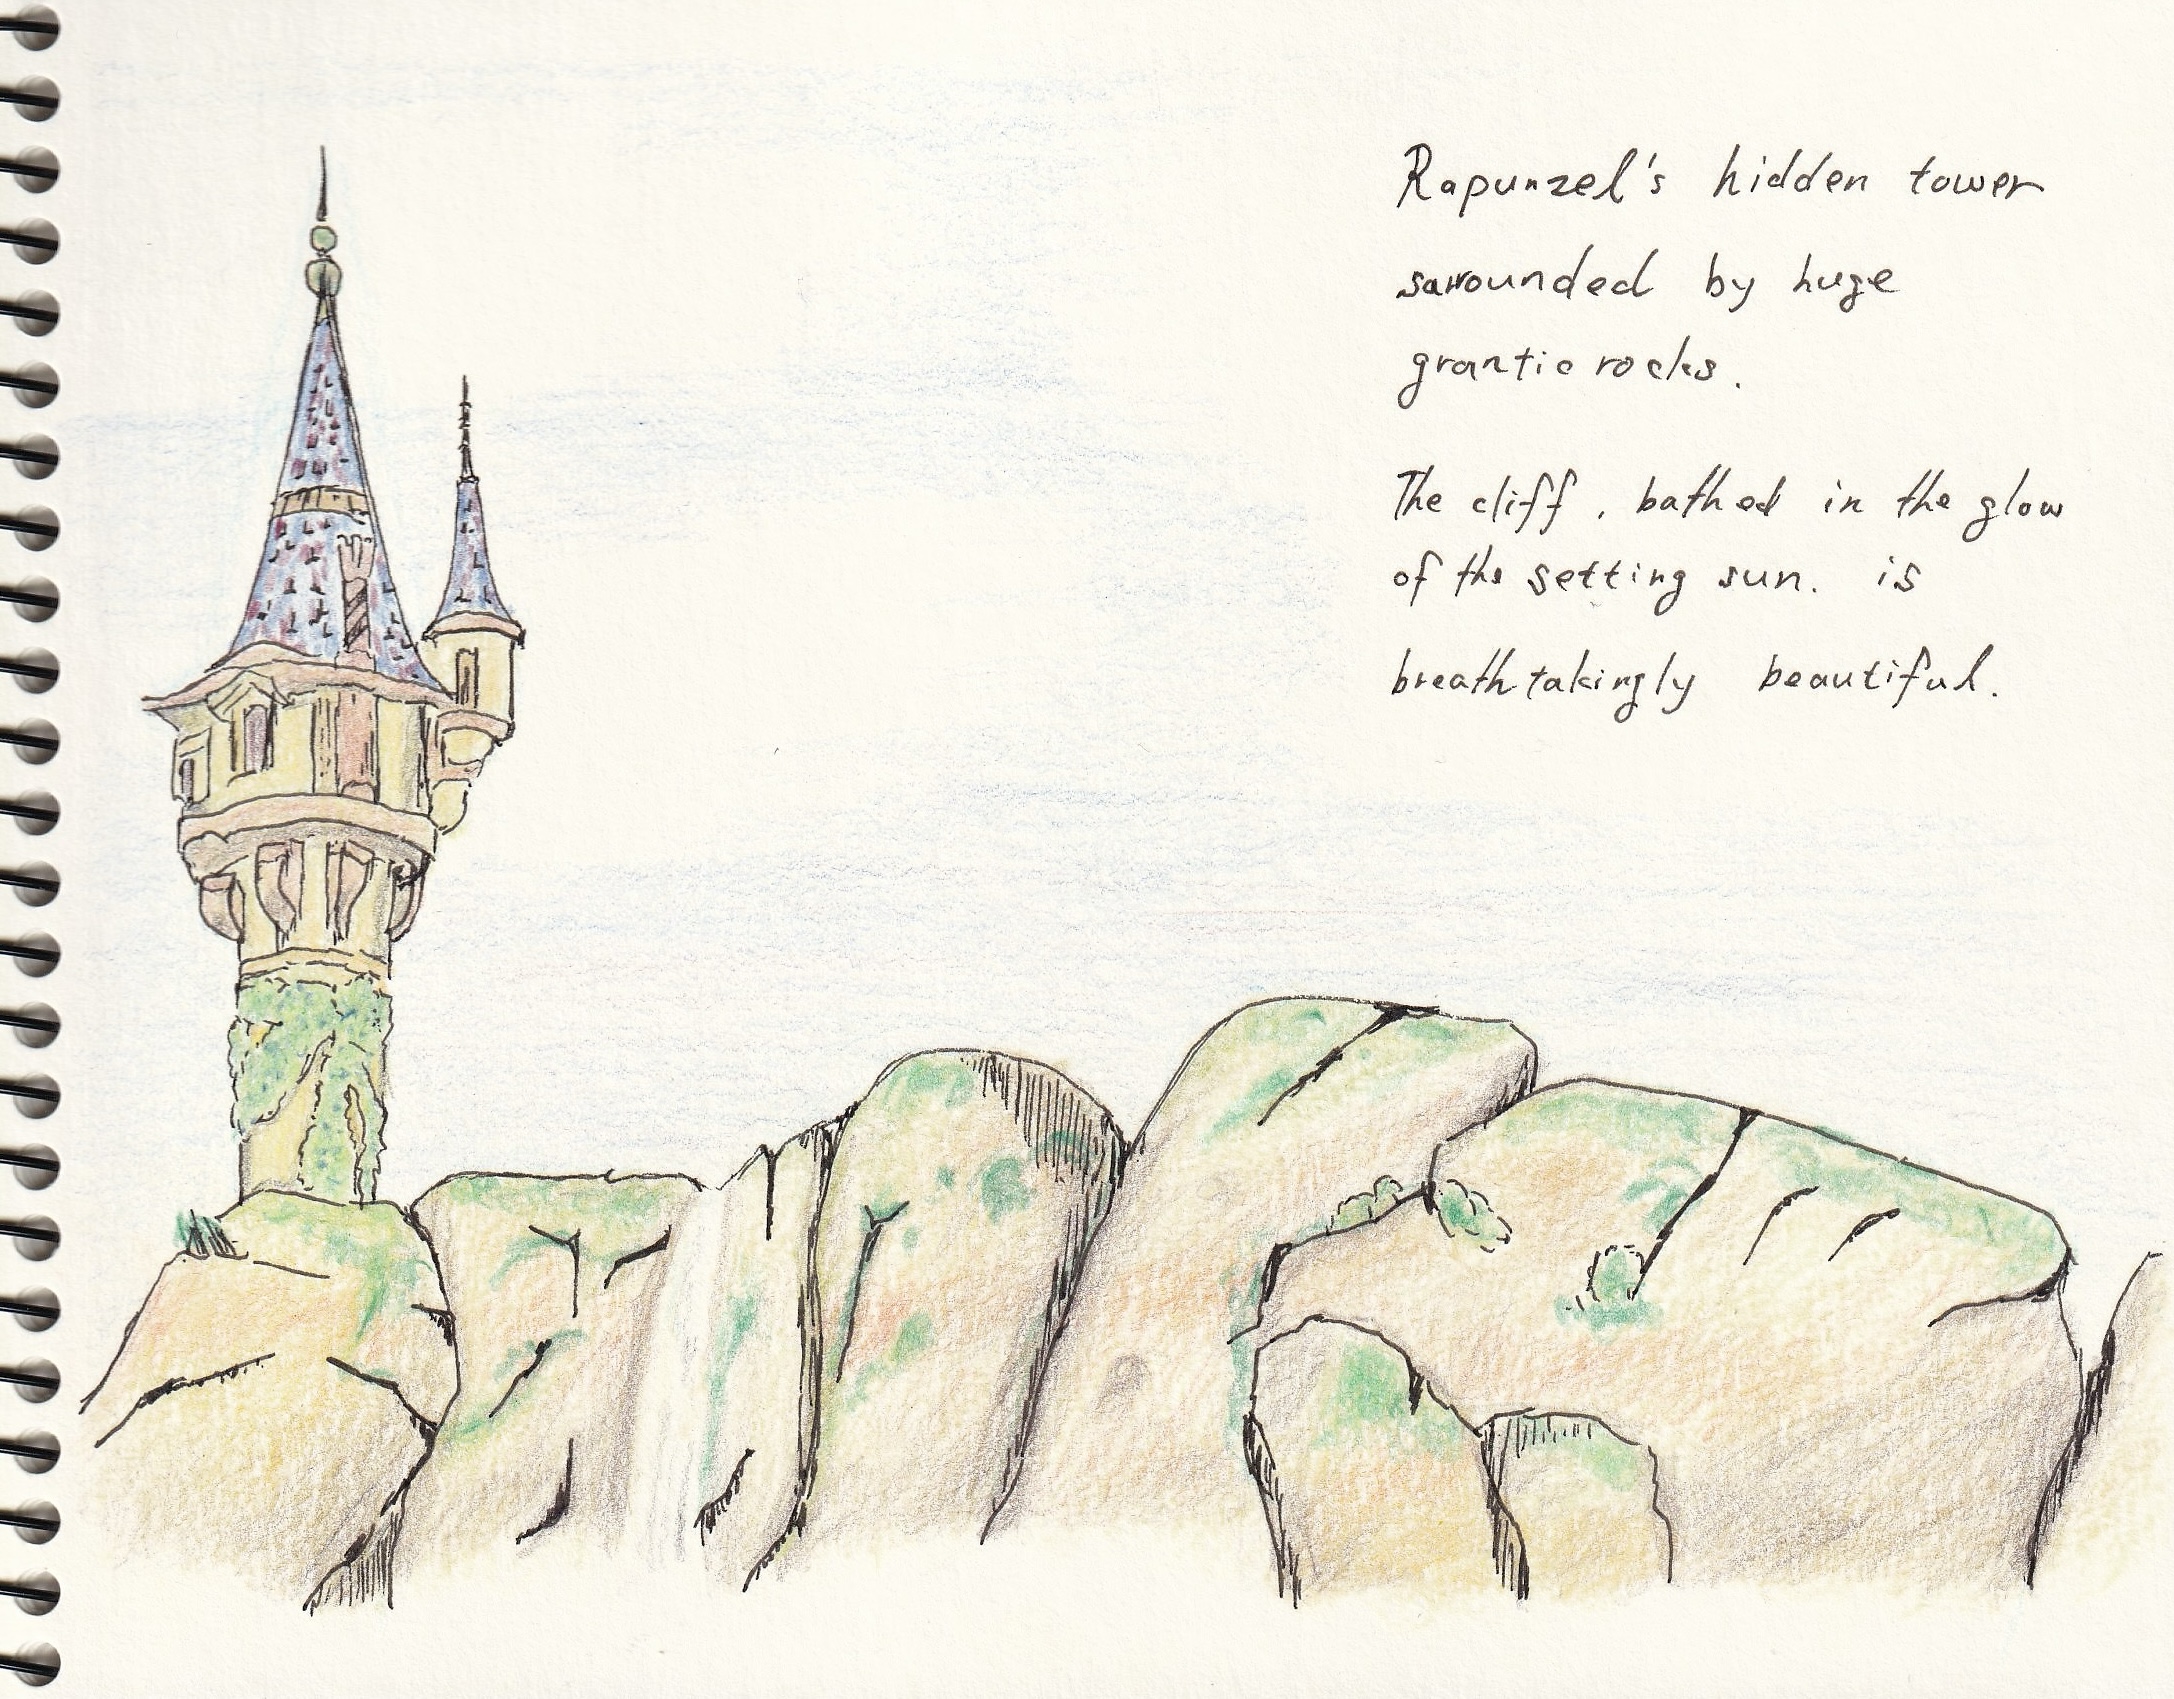 Rapunzel's hidden tower
sarrounded by huge
grantic rocks.
The cliff, bathed in the glow
of the setting sun. is
breathtakingly beautiful.